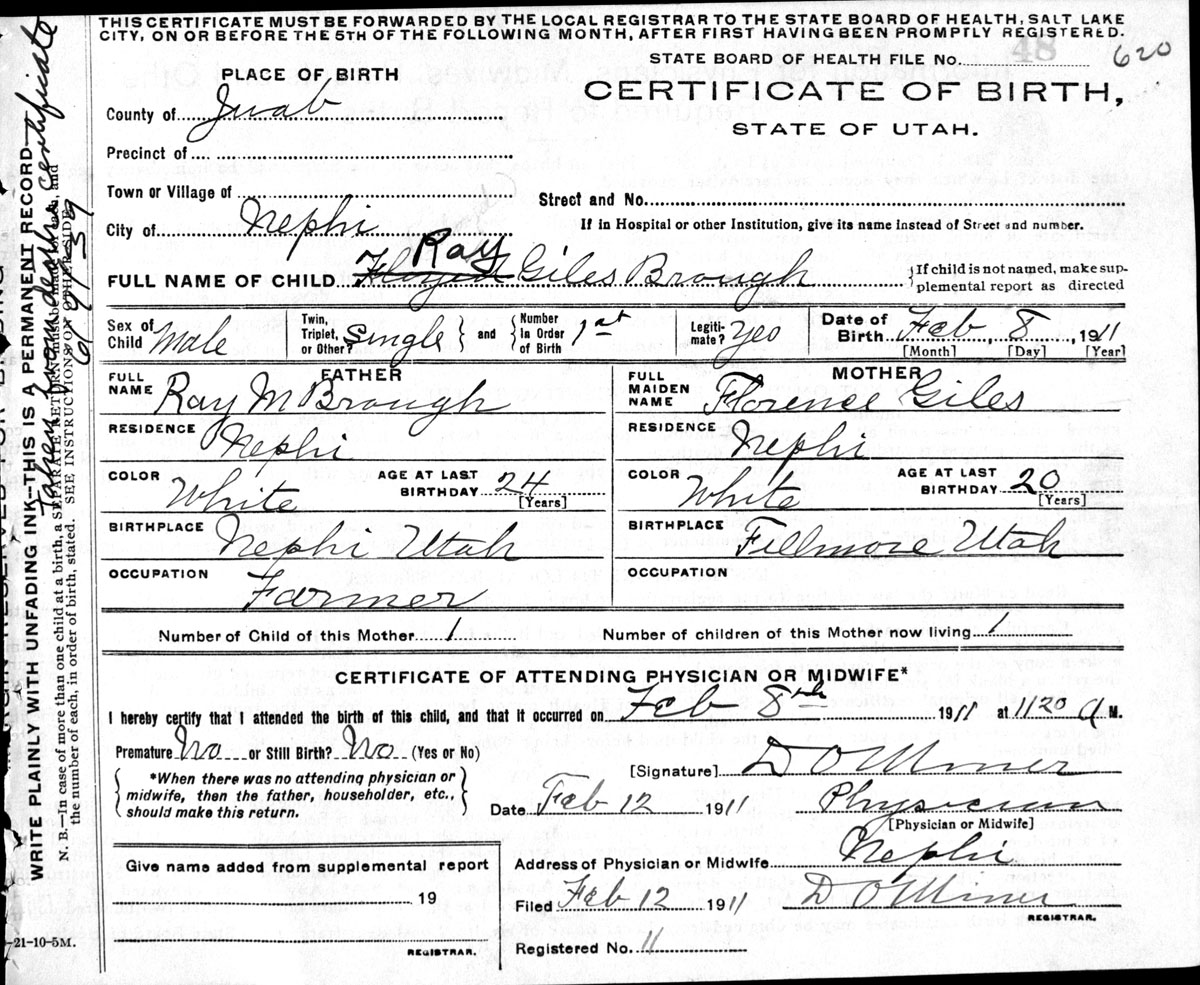 THIS CERTIFICATE MUST BE FORWARDED BY THE LOCAL REGISTRAR TO THE STATE BOARD OF HEALTH, SALT LAKE
CITY, ON OR BEFORE THE 5TH OF THE FOLLOWING MONTH, AFTER FIRST HAVING BEEN PROMPTLY REGISTERED.
STATE BOARD OF HEALTH FILE No. 48 620
PLACE OF BIRTH
CERTIFICATE OF BIRTH,
STATE OF UTAH.
County of Juab
Precinct of
Town or Village of
Street and No.
City of Nephi
If in Hospital or other Institution, give its name instead of Street and number.
Ray
FULL NAME OF CHILD Giles Brough
If child is not named, make sup-
plemental report as directed
Sex of Child Male
Twin, Triplet, or Other? Single and Number in Order of Birth 1st
Legiti-mate? Yes
Date of Birth Feb, 8, 1911
[Month] [Day] [Year]
FATHER
FULL NAME Ray M Brough
RESIDENCE Nephi
COLOR White AGE AT LAST BIRTHDAY 24 [Years]
BIRTHPLACE Nephi Utah
OCCUPATION Farmer
MOTHER
FULL MAIDEN NAME Florence Giles
RESIDENCE Nephi
COLOR White AGE AT LAST BIRTHDAY 20 [Years]
BIRTHPLACE Fillmore Utah
OCCUPATION
Number of Child of this Mother 1 Number of children of this Mother now living 1
CERTIFICATE OF ATTENDING PHYSICIAN OR MIDWIFE*
I hereby certify that I attended the birth of this child, and that it occurred on Feb 8th 1911 at 1120 a M.
Premature No or Still Birth? No (Yes or No)
*When there was no attending physician or
midwife, then the father, householder, etc.,
should make this return.
[Signature] D O Miner
Date Feb 12 1911 Physician
[Physician or Midwife]
Give name added from supplemental report
19
REGISTRAR.
Address of Physician or Midwife Nephi
Filed Feb 12 1911 D O Miner
REGISTRAR.
Registered No. 11
-21-10-5M.
WRITE PLAINLY WITH UNFADING INK—THIS IS A PERMANENT RECORD
N. B.—In case of more than one child at a birth, a SEPARATE RETURN must be made for each, and
the number of each, in order of birth, stated. SEE INSTRUCTIONS ON OTHER SIDE
certificate